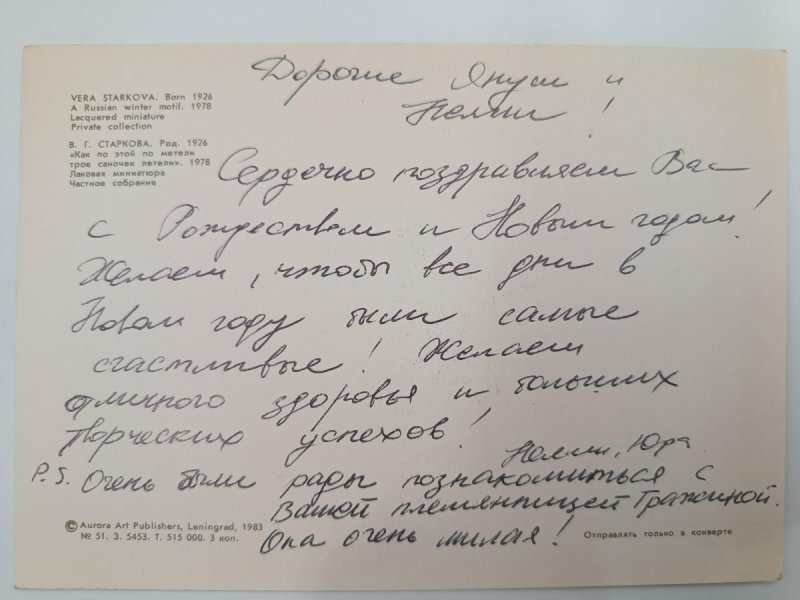 Дорогие Януш и
Нелли!
VERA STARKOVA. Born 1926
A Russian winter motif. 1978
Lacquered miniature
Private collection
В. Г. СТАРКОВА. Род. 1926
«Как по этой по метели
трое саночек летели». 1978
Лаковая миниатюра
Частное собрание
Сердечно поздравляем Вас
с Рождеством и Новым годом!
Желаем, чтобы все дни в
Новом году были самые
счастливые! Желаем
отличного здоровья и больших
творческих успехов!
Нелли, Юра
P.S. Очень были рады познакомиться с
Вашей племянницей Гражиной.
Она очень милая!
© Aurora Art Publishers, Leningrad, 1983
№ 51. З. 5453. Т. 515 000. 3 коп.
Отправлять только в конверте